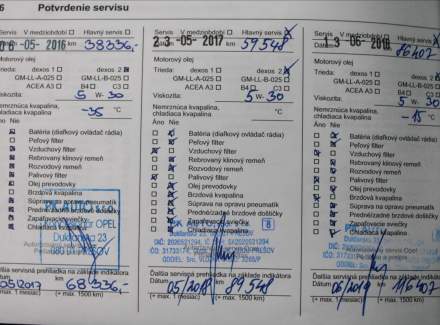 6 Potvrdenie servisu
Servis V medziobdobí Hlavný servis
06 -05- 2016 km 38336,-
Motorový olej
Trieda: dexos 1 dexos 2
GM-LL-A-025 GM-LL-B-025
ACEA A3 B4 C3
Viskozita: 5 W- 30
Nemrznúca kvapalina,
chladiaca kvapalina -35 °C
Áno Nie
Batéria (diaľkový ovládač rádia)
Peľový filter
Vzduchový filter
Rebrovaný klinový remeň
Rozvodový remeň
Palivový filter
Olej prevodovky
Brzdová kvapalina
Súprava na opravu pneumatík
Prednézadné brzdové doštičky
Zapaľovacie sviečky
Chladiaca kvapalina
OPEL
Duklianska 23
Ďalšia servisná prehliadka na základe indikátora
Dátum km
05/2017 68336,-
(+ max. 1 mesiac) (+ max. 1500 km)
Servis V medziobdobí Hlavný servis
23 -05- 2017 km 59548
Motorový olej
Trieda: dexos 1 dexos 2
GM-LL-A-025 GM-LL-B-025
ACEA A3 B4 C3
Viskozita: 5 W- 30
Nemrznúca kvapalina,
chladiaca kvapalina °C
Áno Nie
Batéria (diaľkový ovládač rádia)
Peľový filter
Vzduchový filter
Rebrovaný klinový remeň
Rozvodový remeň
Palivový filter
Olej prevodovky
Brzdová kvapalina
Súprava na opravu pneumatík
Prednézadné brzdové doštičky
Zapaľovacie sviečky
Chladiaca kvapalina
8
Ďalšia servisná prehliadka na základe indikátora
Dátum km
05/2018 89548
(+ max. 1 mesiac) (+ max. 1500 km)
Servis V medziobdobí Hlavný servis
Dátum 13 -06- 2018 km 86407
Motorový olej
Trieda: dexos 1 dexos 2
GM-LL-A-025 GM-LL-B-025
ACEA A3 B4 C3
Viskozita: 5 W- 30
Nemrznúca kvapalina,
chladiaca kvapalina -15 °C
Áno Nie
Batéria (diaľkový ovládač rádia)
Peľový filter
Vzduchový filter
Rebrovaný klinový remeň
Rozvodový remeň
Palivový filter
Olej prevodovky
Brzdová kvapalina
Súprava na opravu pneumatík
Prednézadné brzdové doštičky
Zapaľovacie sviečky
Chladiaca kvapalina
Ďalšia servisná prehliadka na základe indikátora
Dátum km
06/2019 116407
(+ max. 1 mesiac) (+ max. 1500 km)